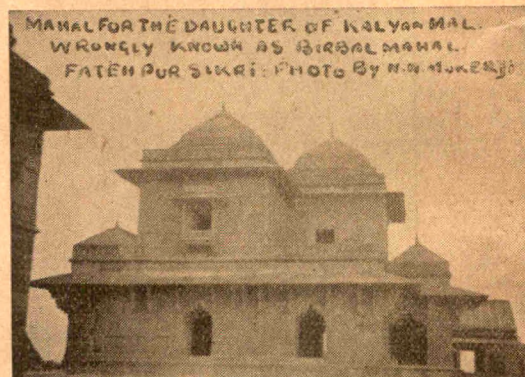 MAHAL FOR THE DAUGHTER OF KALYAN MAL.
WRONGLY KNOWN AS BIRBAL MAHAL.
FATEHPUR SIKRI: PHOTO BY N.N. MUKERJI